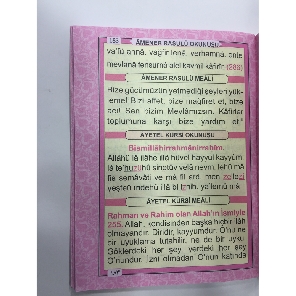 183 ÂMENER RASULÜ OKUNUŞU
va'fü annâ, vağfir lenâ, verhamnâ, ente
mevlânâ fensurnâ alel kavmil kâfirîn (286)
ÂMENER RASULÜ MEÂLİ
Bize gücümüzün yetmediği şeyleri yük-
leme! Bizi affet, bize mağfiret et, bize
acı! Sen bizim Mevlâmızsın. Kâfirler
toplumuna karşı bize yardım et."
ÂYETEL KÜRSİ OKUNUŞU
Bismillâhirrahmânirrahîm.
Allâhü lâ ilâhe illâ hüvel hayyul kayyûm,
lâ te'huzühû sinetüv velâ nevm, lehû mâ
fis semâvâti ve mâ fil ard, men zellezî
yeşfeu indehû illâ bi iznih, ya'lemü mâ
ÂYETEL KÜRSİ MEÂLİ
Rahman ve Rahim olan Allah'ın İsmiyle
255. Allah, kendisinden başka hiçbir ilâh
olmayandır. Diridir, kayyumdur. O'nu ne
bir uyuklama tutabilir, ne de bir uyku.
Göklerdeki her şey, yerdeki her şey
O'nundur. İzni olmadan O'nun katında